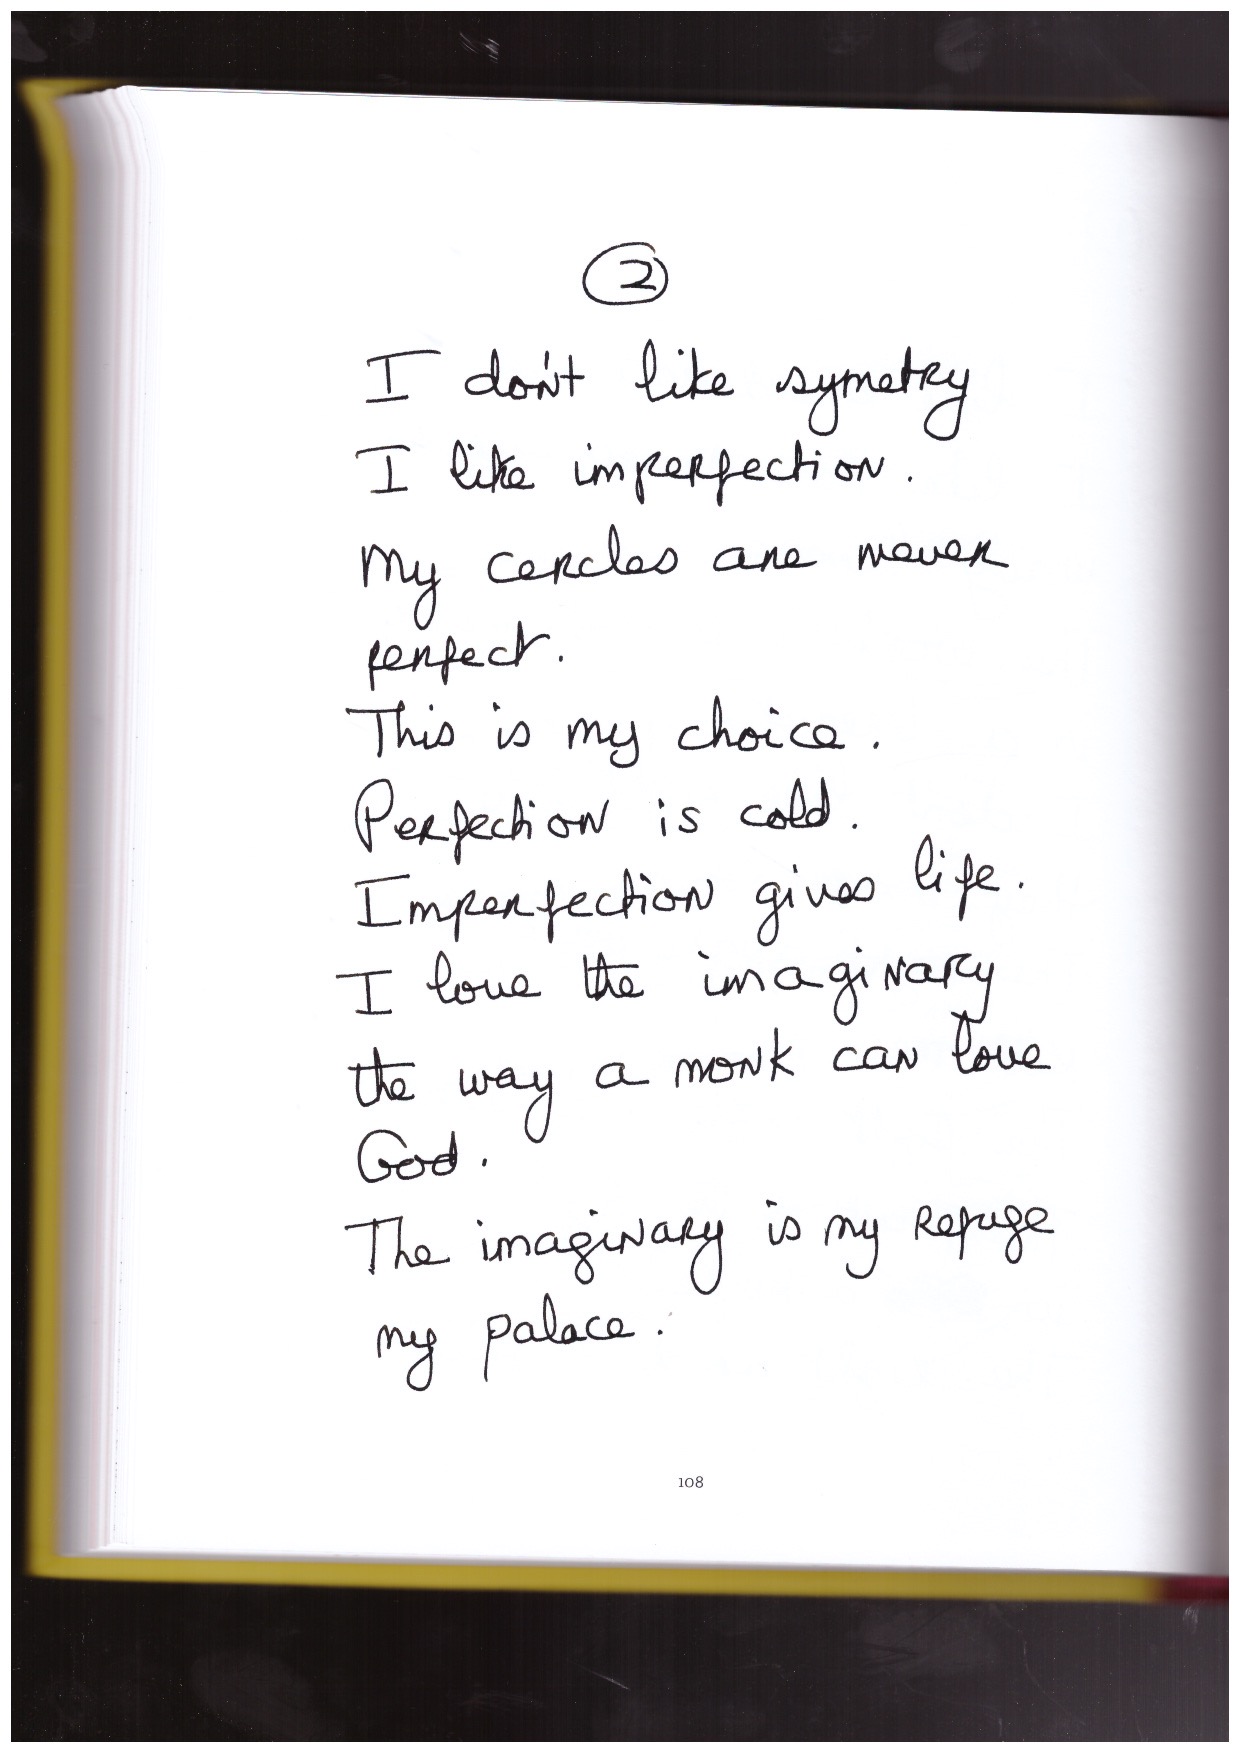 2
I don't like symetry
I like imperfection.
My cercles are never
perfect.
This is my choice.
Perfection is cold.
Imperfection gives life.
I love the imaginary
the way a monk can love
God.
The imaginary is my refuge
my palace.
108